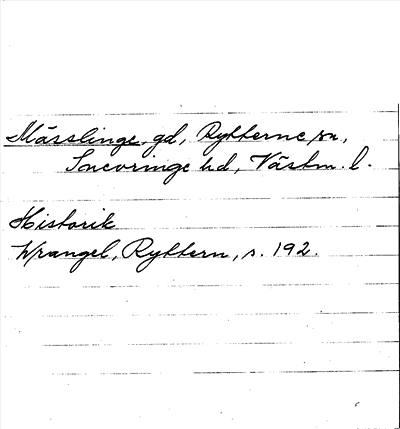 Mässlinge gd, Rytterne sn,
Snevringe hd, Västm. l.
Historik
Wrangel, Ryttern, s. 192.